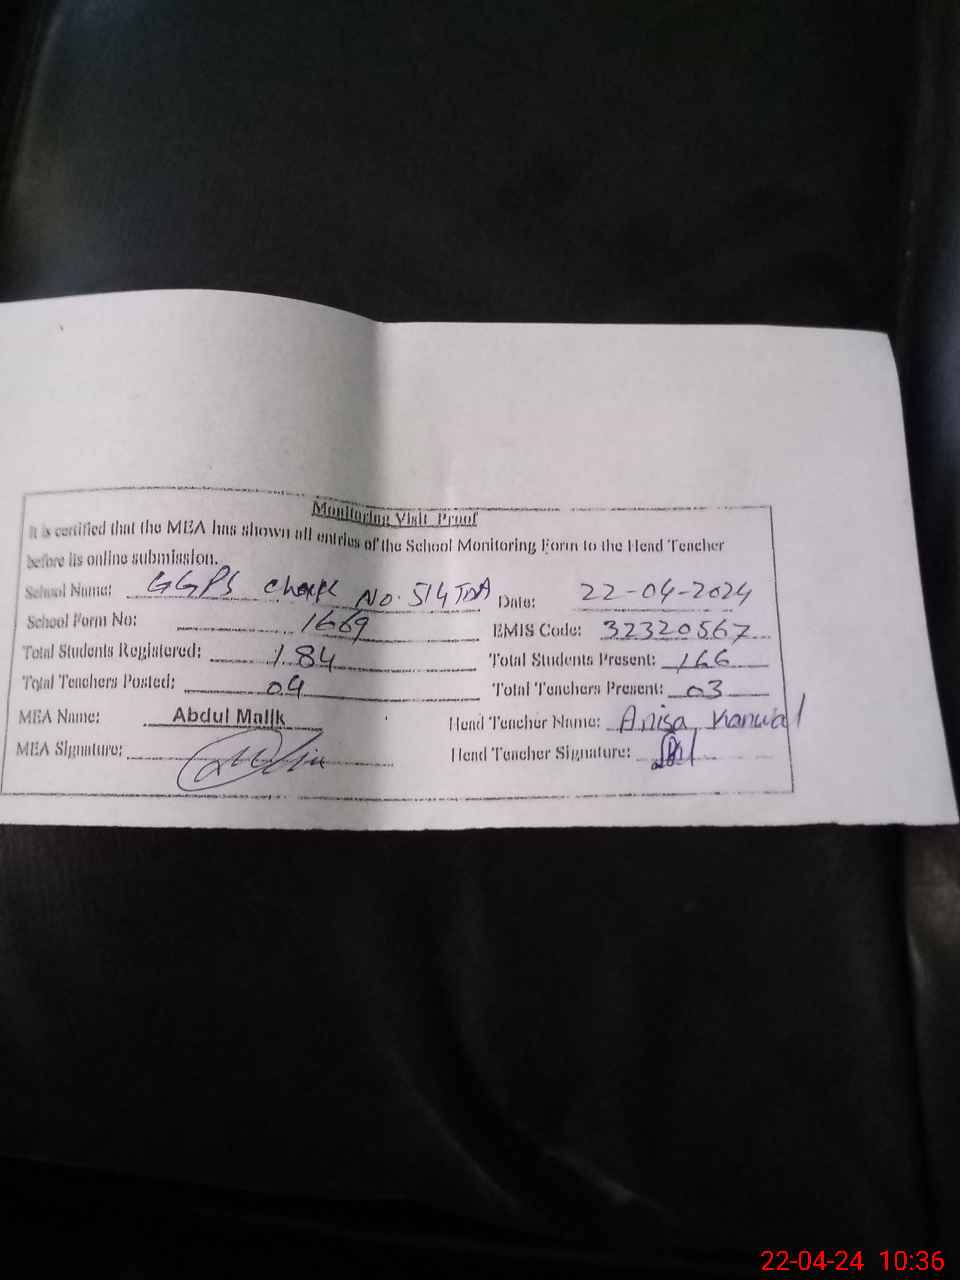 Monitoring Visit Proof
It is certified that the MEA has shown all entries of the School Monitoring Form to the Head Teacher
before its online submission.
School Name: GGPS Chak No. 514 TDA Date: 22-04-2024
School Form No: 1669 EMIS Code: 32320567
Total Students Registered: 184 Total Students Present: 166
Total Teachers Posted: 04 Total Teachers Present: 03
MEA Name: Abdul Malik Head Teacher Name: Anisa Kanwal
MEA Signature: Head Teacher Signature:
22-04-24 10:36